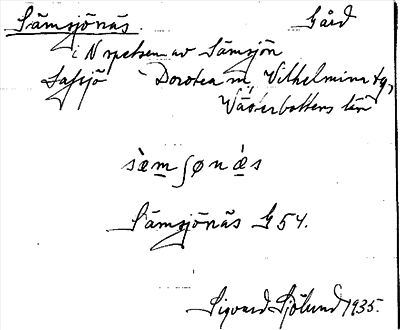 Sämsjönäs. Gård
i N spetsen av Sämsjön
Dorotea m, Vilhelmina tg,
Västerbottens län
sæ̀m ʃønæ̀s
Sämsjönäs G 54.
Sigvard Sjölund 1935.